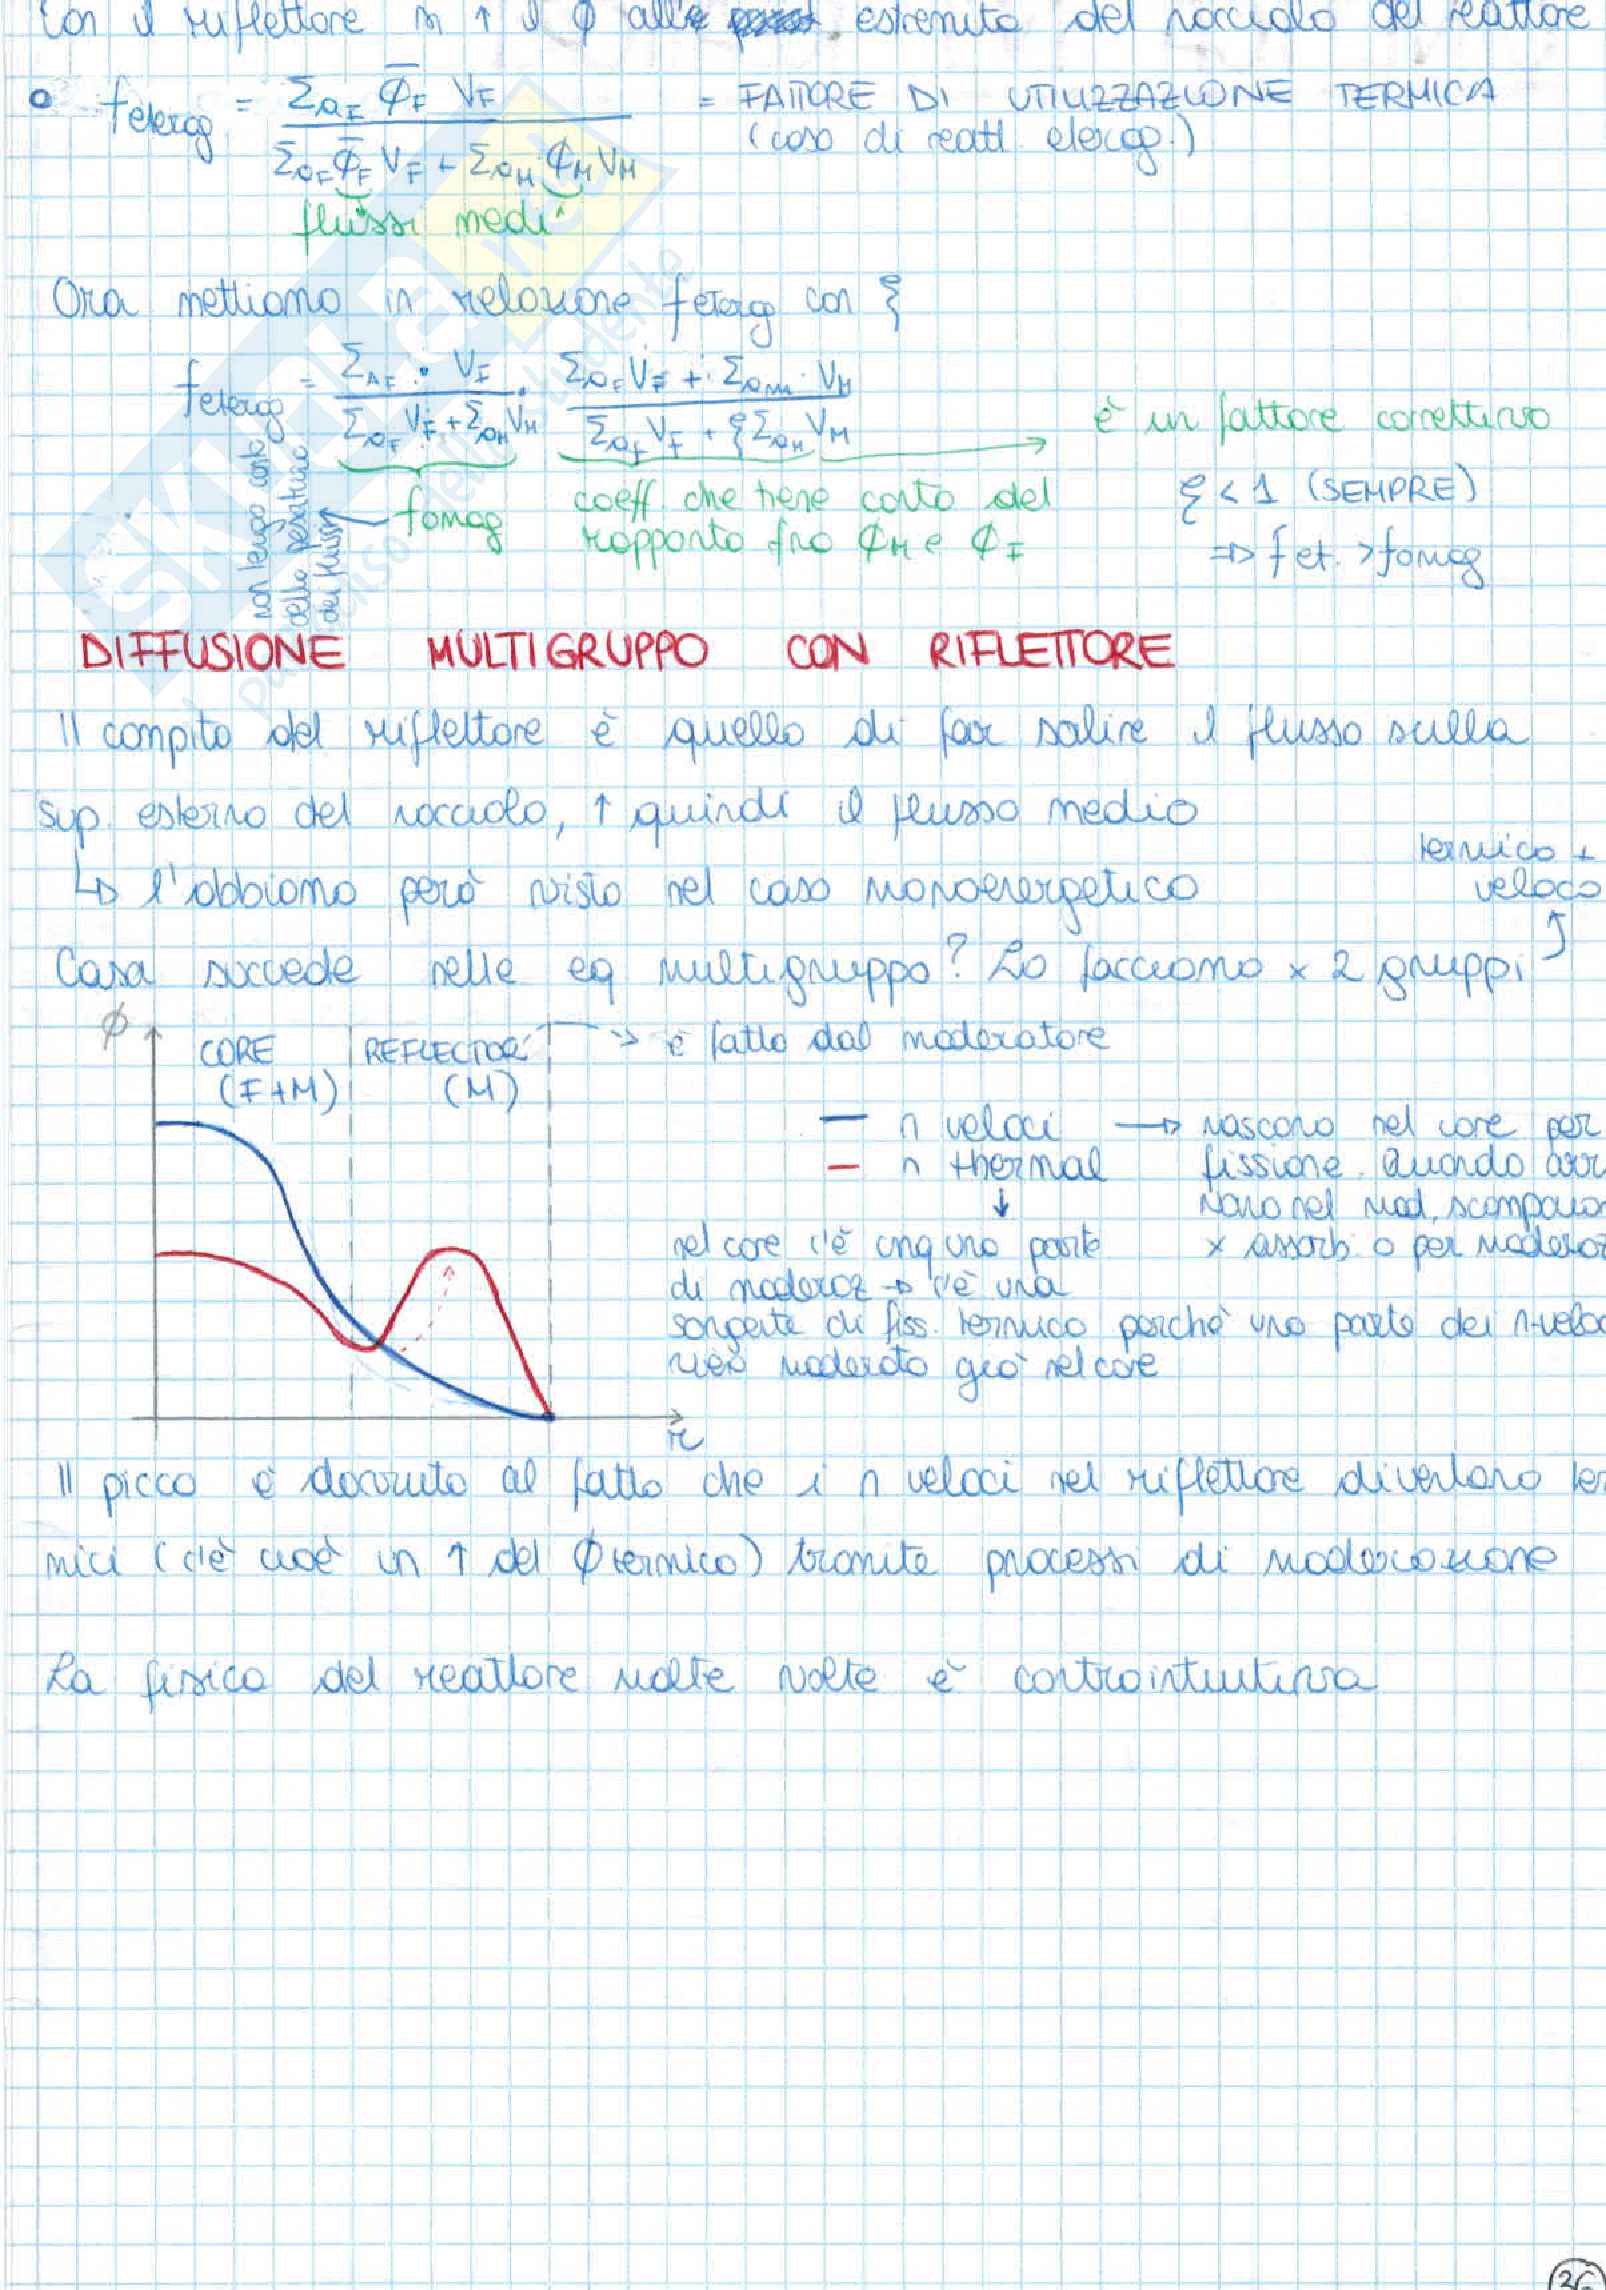 Con il riflettore m ↑ il ϕ alle estremità del nocciolo del reattore
feterog = Σ_aF ϕ̄_F V_F / (Σ_aF ϕ̄_F V_F + Σ_aM ϕ̄_M V_M) = FATTORE DI UTILIZZAZIONE TERMICA
(caso di reatt. eterog.)
flussi medi
Ora mettiamo in relazione feterog con ξ
feterog = Σ_aF · V_F / (Σ_aF V_F + Σ_aM V_M) · (Σ_aF V_F + Σ_aM · V_M) / (Σ_aF V_F + ξ Σ_aM V_M) → è un fattore correttivo
fomog
non tengo conto
della
dei flussi
coeff. che tiene conto del
rapporto fra ϕ_M e ϕ_F
ξ < 1 (SEMPRE)
⇒ f et. > fomog
DIFFUSIONE MULTIGRUPPO CON RIFLETTORE
Il compito del riflettore è quello di far salire il flusso sulla
sup. esterna del nocciolo, ↑ quindi il flusso medio
↳ l'abbiamo però visto nel caso monoenergetico
termico +
veloce
Cosa succede nelle eq multigruppo? Lo facciamo x 2 gruppi
ϕ
CORE
(F+M)
REFLECTOR
(M)
→ è fatto dal moderatore
— n veloci → nascono nel core per
— n thermal
fissione. Quando arri
vano nel mod. scompaio
x assorb. o per moderaz
nel core c'è cmq una parte
di moderaz → c'è una
sorgente di fiss. termica perché una parte dei n veloc
viene moderata già nel core
r
Il picco è dovuto al fatto che i n veloci nel riflettore diventano ter
mici (c'è cioè un ↑ del ϕ termico) tramite processi di moderazione
La fisica del reattore molte volte è controintuitiva
36